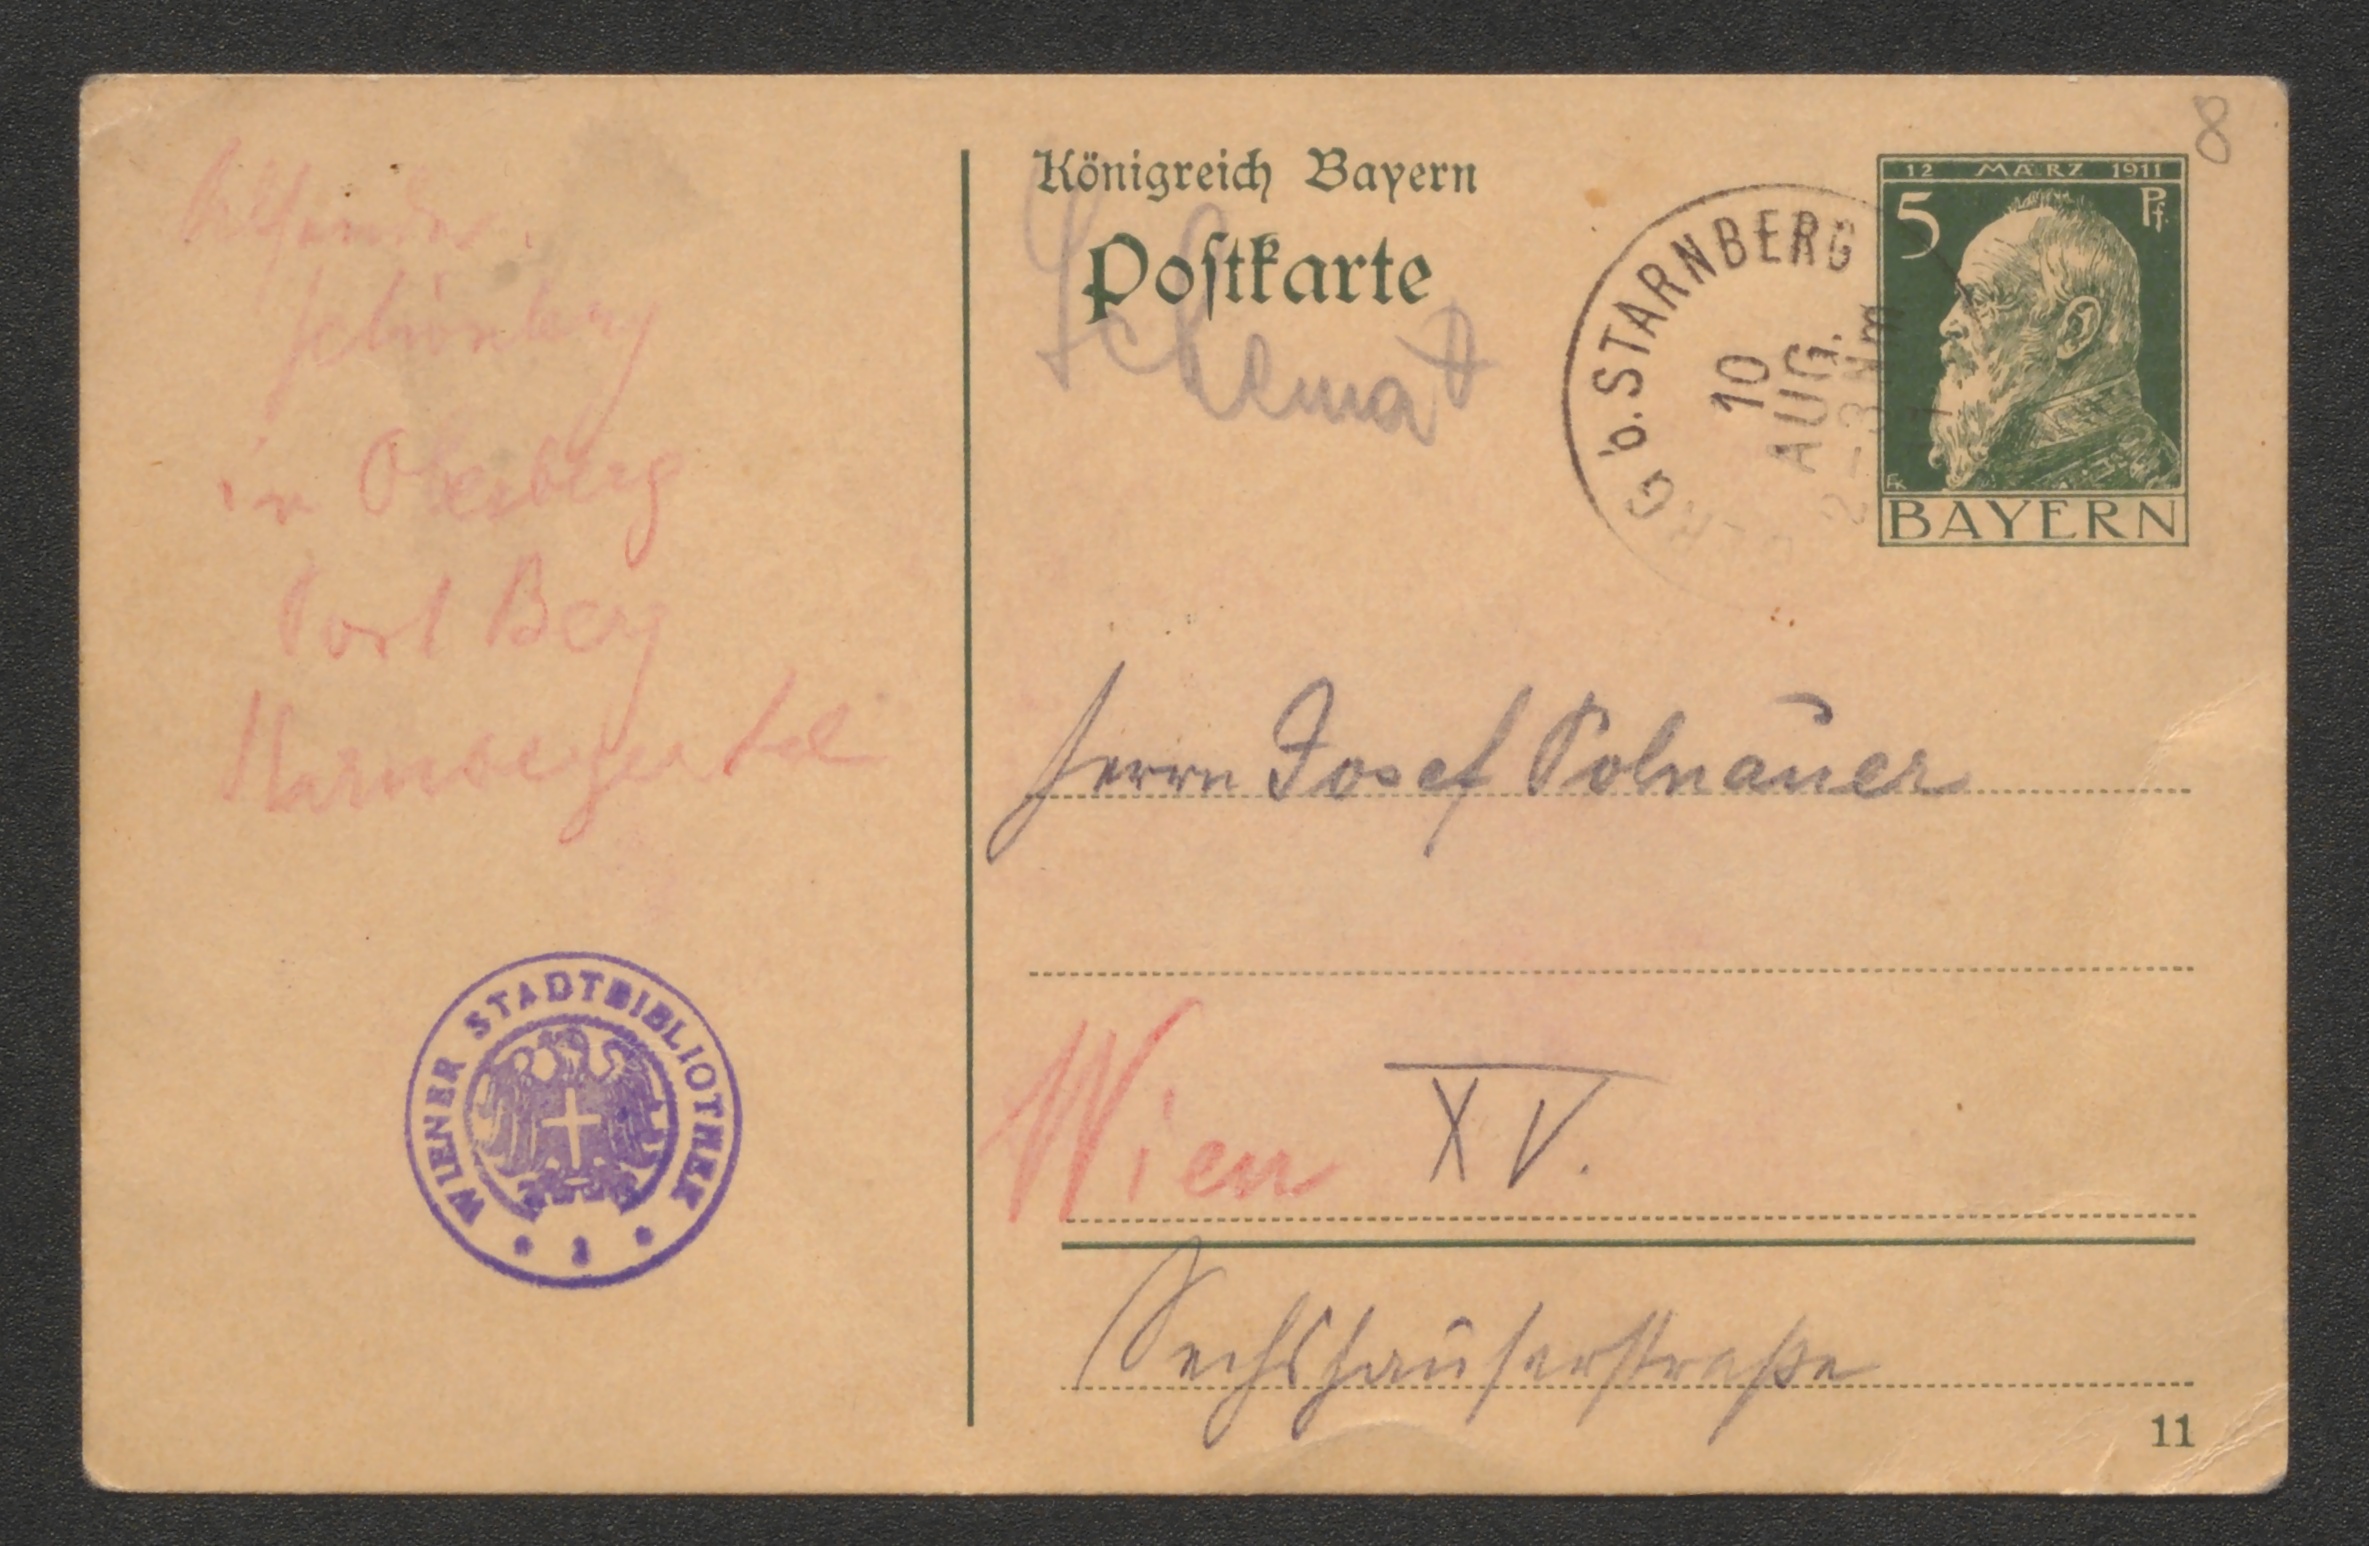 8
Königreich Bayern
Postkarte
12 MÄRZ 1911
5 Pf.
BAYERN
G b. STARNBERG
10
AUG.
2-3 Nm
Absender:
Schönberg
in Oberberg
Post Berg
Starnbergersee
Herrn Josef Polnauer
Wien XV.
Sechshauserstraße
WIENER STADTBIBLIOTHEK
11